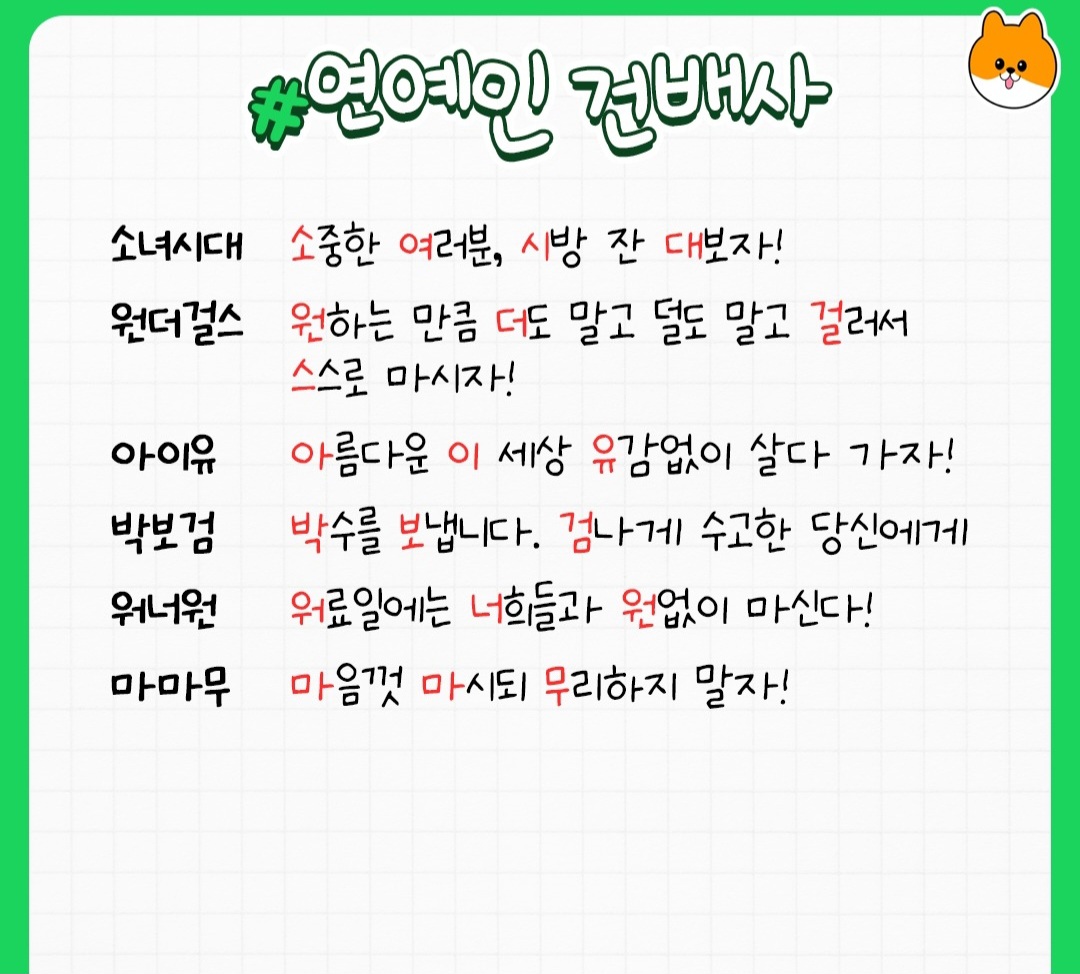 #연예인 건배사
소녀시대 소중한 여러분, 시방 잔 대보자!
원더걸스 원하는 만큼 더도 말고 덜도 말고 걸러서
스스로 마시자!
아이유 아름다운 이 세상 유감없이 살다 가자!
박보검 박수를 보냅니다. 검나게 수고한 당신에게
워너원 워료일에는 너희들과 원없이 마신다!
마마무 마음껏 마시되 무리하지 말자!